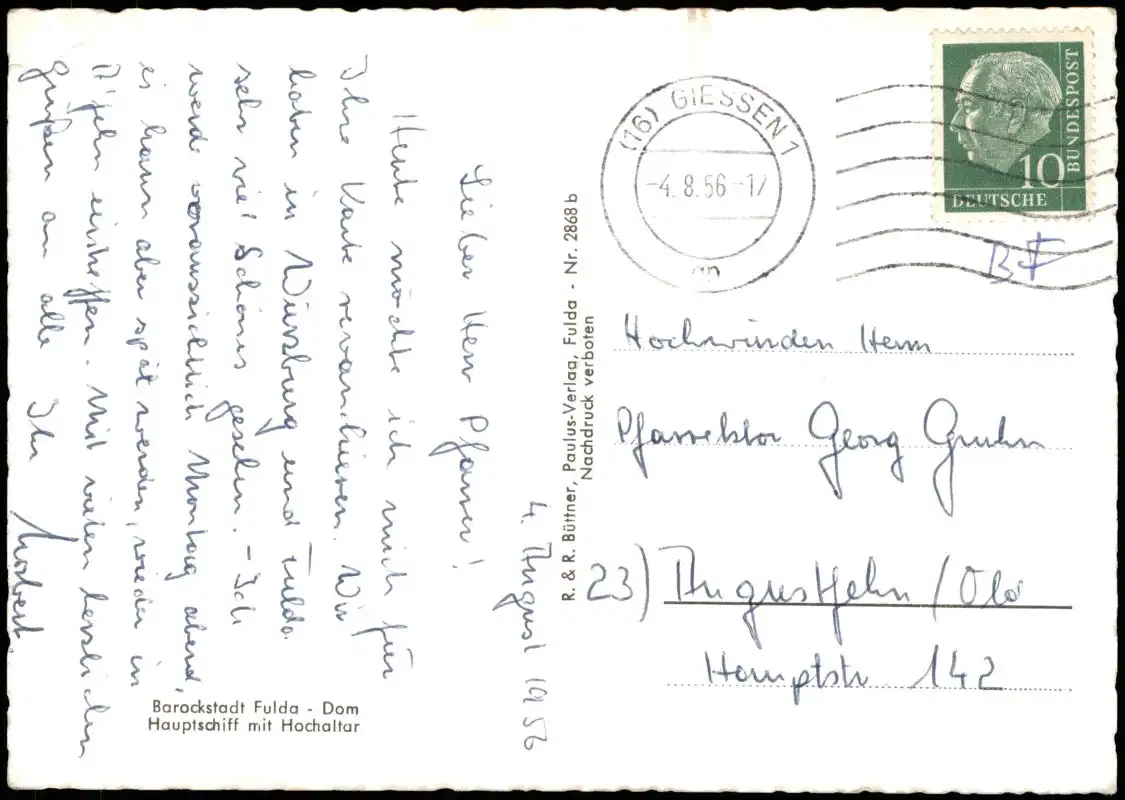 4. August 1956
Lieber Herr Pfarrer!
Heute möchte ich mich für
Ihre Karte revanchieren. Wir
haben in Würzburg und Fulda
sehr viel Schönes gesehen. – Ich
werde voraussichtlich Montag abend,
es kann aber spät werden, wieder in
A'fehn eintreffen. Mit vielen herzlichen
Grüßen an alle Ihr
Norbert
Barockstadt Fulda - Dom
Hauptschiff mit Hochaltar
R. & R. Büttner, Paulus-Verlag, Fulda - Nr. 2868 b
Nachdruck verboten
(16) GIESSEN 1
-4.8.56-17
DEUTSCHE
BUNDESPOST
10
Hochwürden Herrn
Pfarrektor Georg
23) Augustfehn / Old
Hauptstr 142